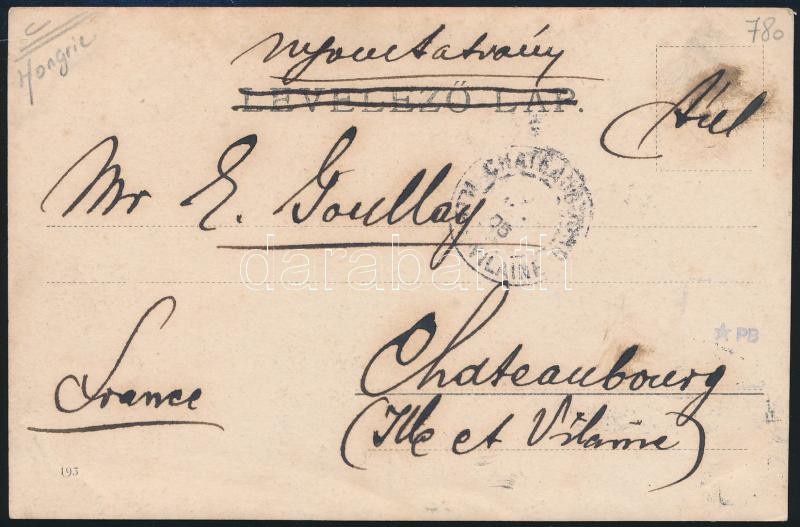 Hongrie
780
Nyomtatvány
LEVELEZŐ LAP.
Mr E. Goullay
VILAINE
05
darabanth
PB
Chateaubourg
(Ille et Vilaine)
France
193